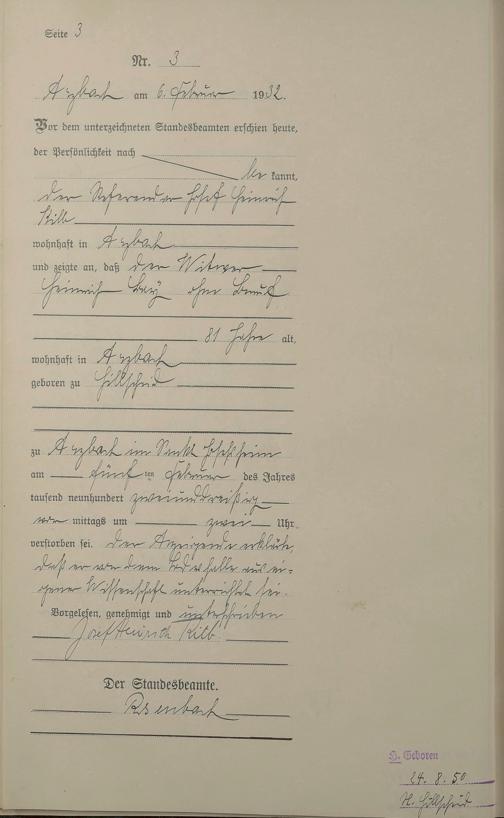 Seite 3
Nr. 3
Arzbach am 6. Februar 1932.
Vor dem unterzeichneten Standesbeamten erschien heute,
der Persönlichkeit nach
be kannt,
der Referendar Josef Heinrich
Kilb
wohnhaft in Arzbach
und zeigte an, daß der Witwer
Heinrich ohne Beruf
81 Jahre alt,
wohnhaft in Arzbach
geboren zu Hillscheid
zu Arzbach im Sankt Josefsheim
am fünf ten Februar des Jahres
tausend neunhundert zweiunddreißig
vor mittags um zwei Uhr
verstorben sei. Der Anzeigende erklärte,
daß er von dem Todesfalle aus ei-
gener Wissenschaft unterrichtet sei.
Vorgelesen, genehmigt und unterschrieben
Josef Heinrich Kilb
Der Standesbeamte.
H. Geboren
24. 8. 50